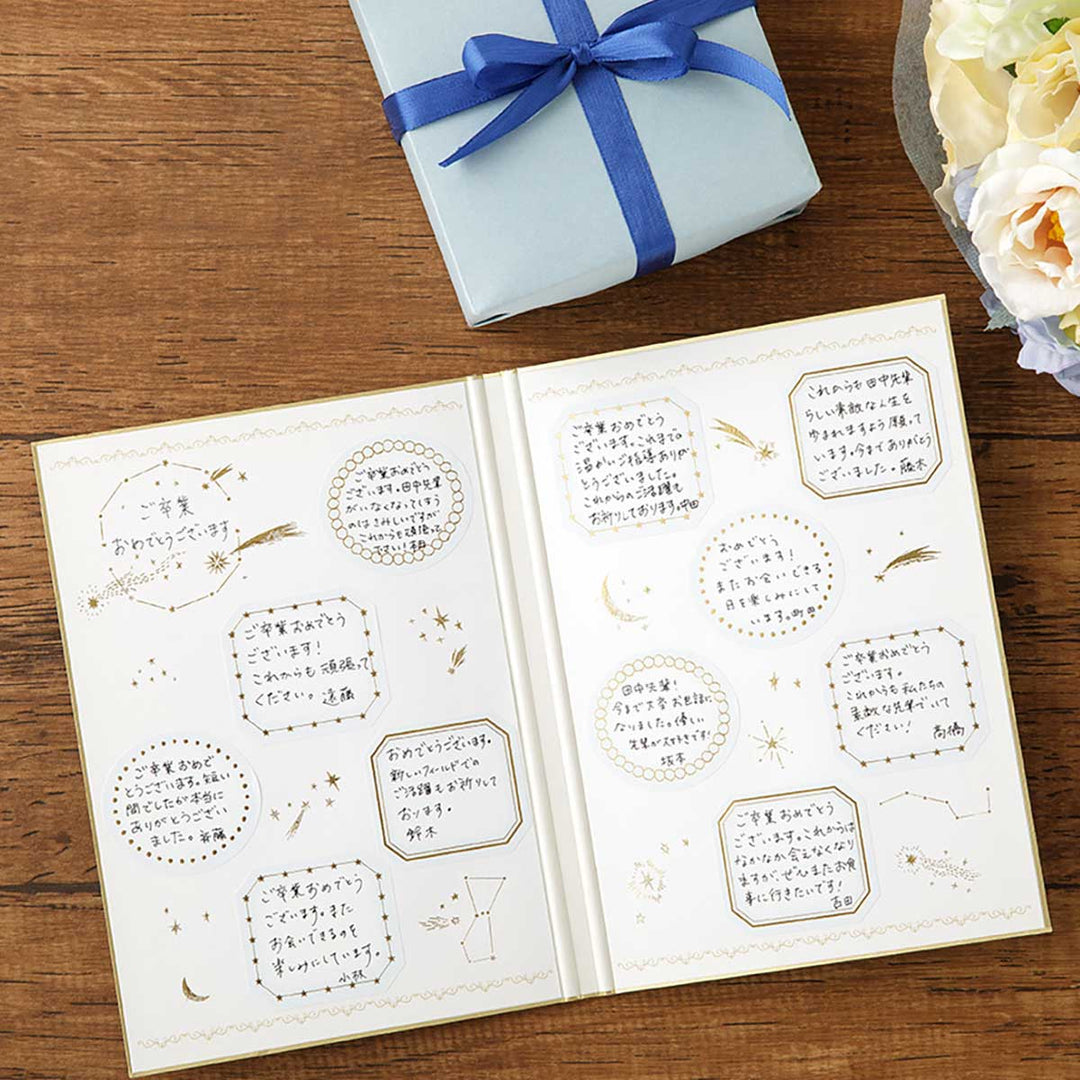 ご卒業
おめでとうございます
ご卒業おめでとう
ございます。田中先輩
がいなくなってしまう
のはさみしいですが
これからも頑張って
下さい！
ご卒業おめでとう
ございます！
これからも頑張って
ください。遠藤
ご卒業おめで
とうございます。短い
間でしたが本当に
ありがとうござい
ました。斉藤
おめでとうございます。
新しいフィールドでの
ご活躍もお祈りして
おります。
鈴木
ご卒業おめでとう
ございます。また
お会いできるのを
楽しみにしています。
小林
ご卒業おめでとう
ございます。これまでの
温かいご指導ありが
とうございました。
これからのご活躍も
お祈りしております。中田
これからも田中先輩
らしい素敵な人生を
歩まれますよう願って
います。今までありがとう
ございました。藤木
おめでとう
ございます！
またお会いできる
日を楽しみにして
います。町田
田中先輩！
今まで大変お世話に
なりました。優しい
先輩が大好きです！
坂本
ご卒業おめでとう
ございます。
これからも私たちの
素敵な先輩でいて
ください！
高橋
ご卒業おめでとう
ございます。これからは
なかなか会えなくなり
ますが、ぜひまたお食
事に行きたいです！
吉田